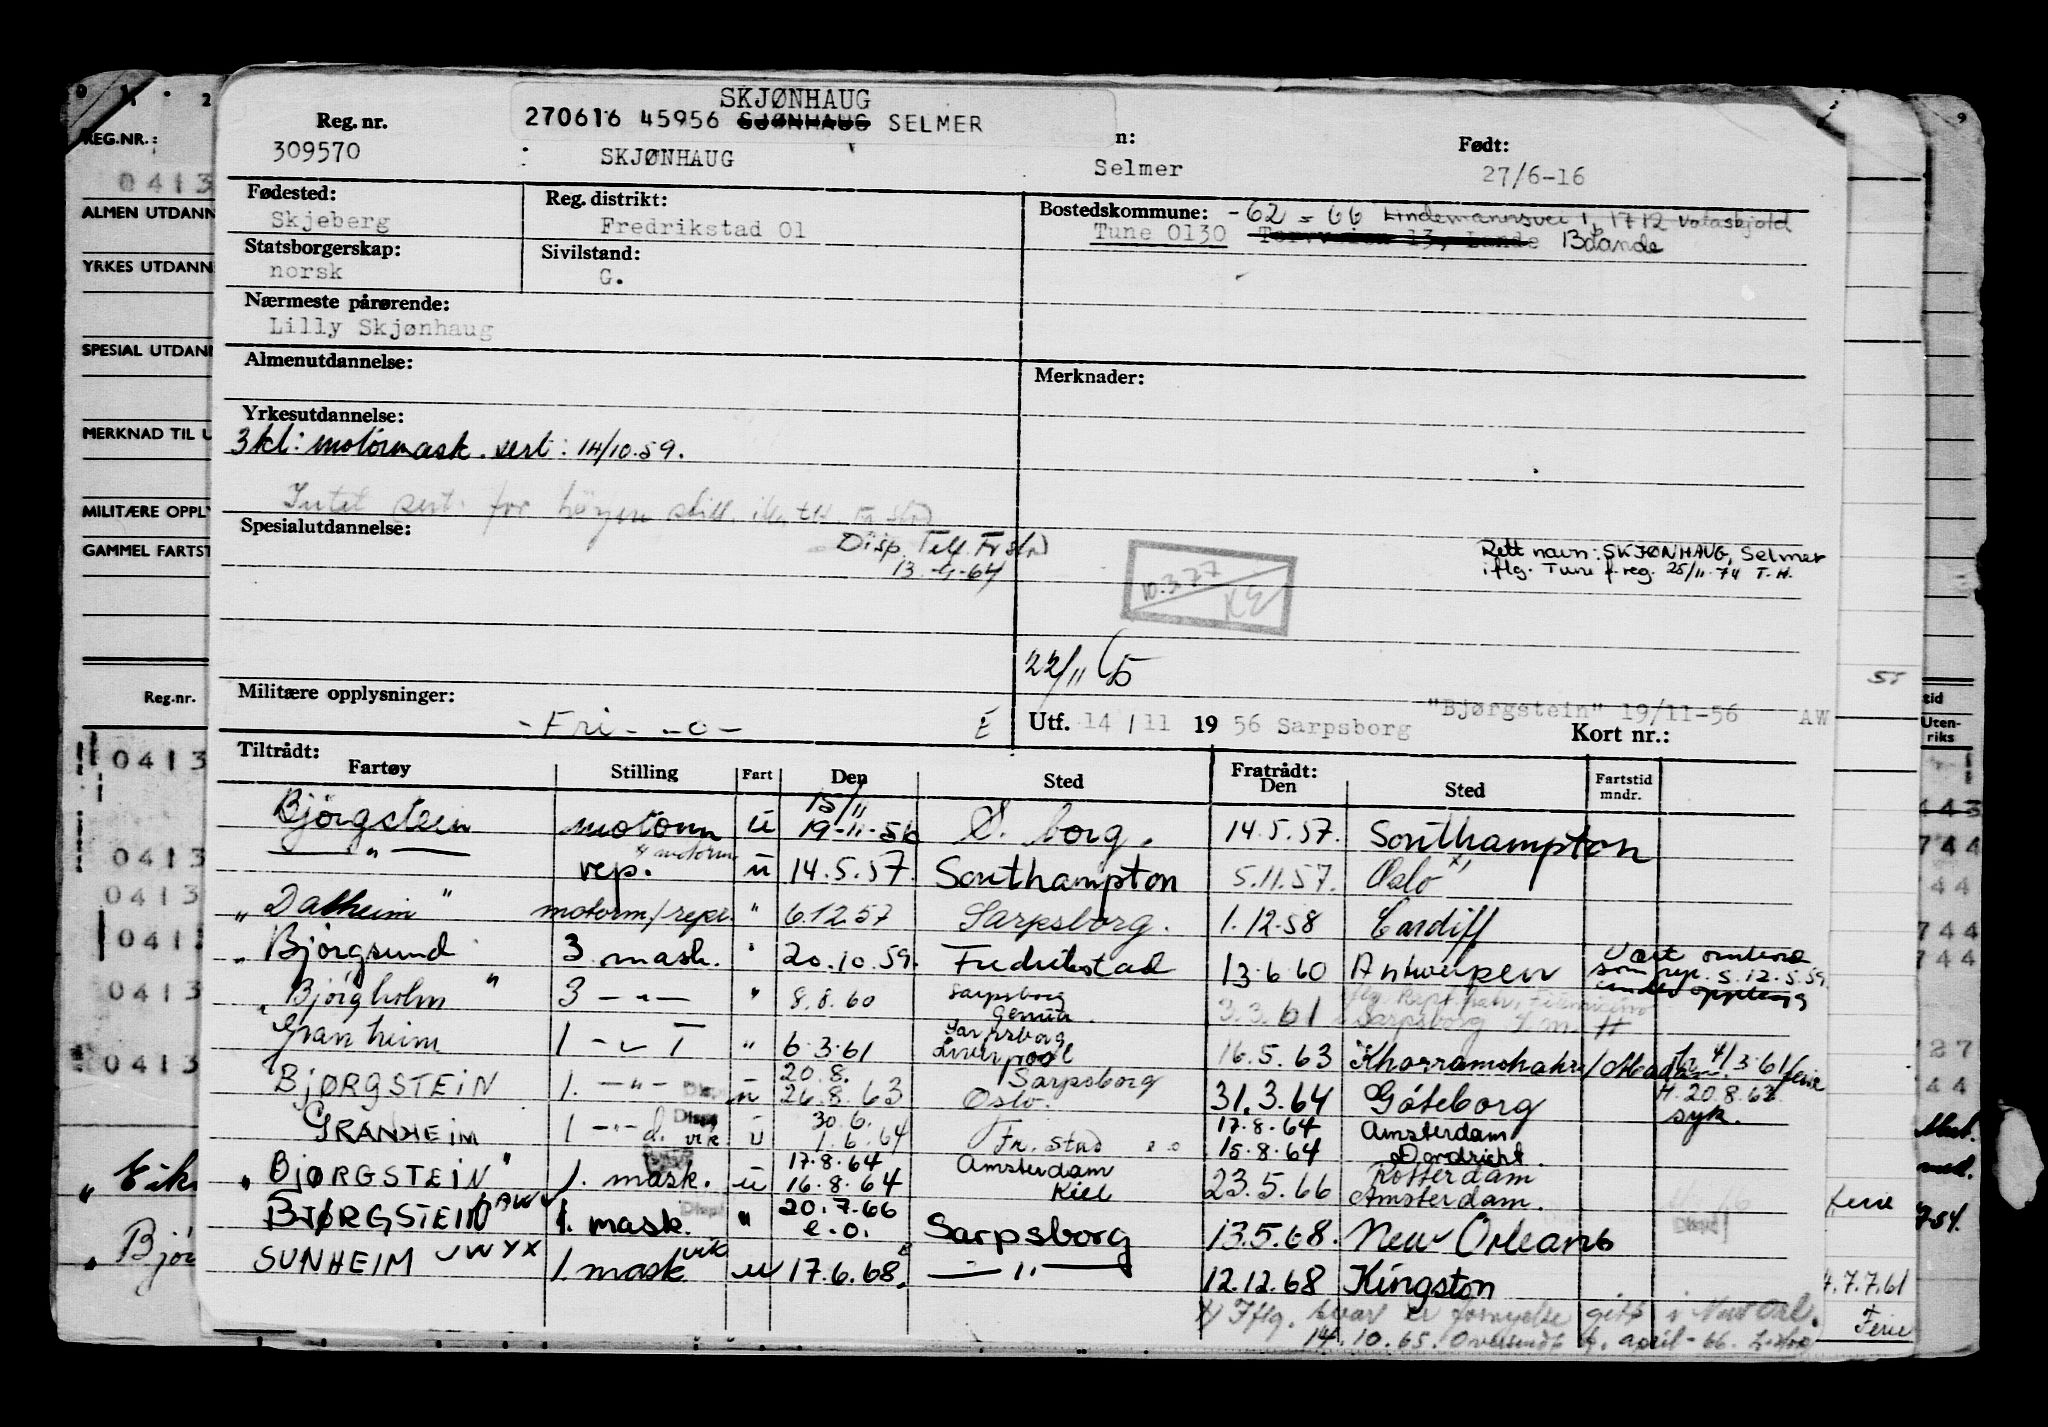 SKJØNHAUG
Reg. nr. 270616 45956 SJØNHAUG SELMER n: Født:
309570 : SKJØNHAUG Selmer 27/6-16
Fødested: Reg. distrikt: Bostedskommune: -62 = 66 Lindemannsvei 1, 1712 Valaskjold
Skjeberg Fredrikstad 01 Tune 0130
Statsborgerskap: Sivilstand:
norsk G.
Nærmeste pårørende:
Lilly Skjønhaug
Almenutdannelse: Merknader:
Yrkesutdannelse:
3kl: motormask. sert: 14/10.59.
Intet sert. for høyere still.
Spesialutdannelse:
Disp. Telf. Fr.stad
13.-4-64
Rett navn: SKJØNHAUG, Selmer
iflg. Tune f.reg. 25/11.74 T.H.
10.3.77
KE
22/11 65
Militære opplysninger: "Bjørgstein" 19/11-56 AW
- Fri - -o- E Utf. 14 / 11 1956 Sarpsborg Kort nr.:
Tiltrådt: Fratrådt:
Fartøy Stilling Fart Den Sted Den Sted Fartstid mndr.
15/11
Bjørgstein motorm u 19-11-56 S. borg. 14.5.57. Southampton
— " — rep. x motorm u 14.5.57. Southampton 5.11.57. Oslo x)
" Dalheim " motorm/repr. " 6.12.57 Sarpsborg. 1.12.58 Cardiff
" Bjørgsund 3 mask. " 20.10.59. Fredrikstad 13.6.60 Antwerpen Vært ombord
som rep. s. 12.5.59
" Bjørgholm " 3 — " — " 8.8.60 Sarpsborg Genua. 3.3.61 Sarpsborg
Granheim 1 — " — " 6.3.61 Sarpsborg Liverpool 16.5.63 Khorramshahr
20.8. Sarpsborg
BJØRGSTEIN 1. — " — u 26.8.63 Oslo. 31.3.64 Göteborg H. 20.8.63
syk.
30.6. 17.8.64 Amsterdam
GRANHEIM 1 — " — d. vik u 1.6.64 Fr. stad 15.8.64 Dordricht.
17.8.64 Amsterdam Rotterdam
" BJØRGSTEIN " 1. mask. u 16.8.64 Kiel 23.5.66 Amsterdam.
20.7.66
BJØRGSTEIN 1. mask. " e.o. Sarpsborg 13.5.68. New Orleans
SUNHEIM JWYX 1. mask vik u 17.6.68. — " — 12.12.68 Kingston
x) Iflg. svar er fornyelse gitt i New Orl.
14.10.65. Oversendt 4. april - 66.
REG.NR.:
0413
ALMEN UTDANN
YRKES UTDANN
SPESIAL UTDANN
MERKNAD TIL U
MILITÆRE OPPLY
GAMMEL FARTST
Reg.nr.
0413
0413
0413
0413
0413
0413
" Eik
" Bjø
tid
Uten-
riks
443
744
44
744
744
27
44
ferie
4.7.7.61
Ferie